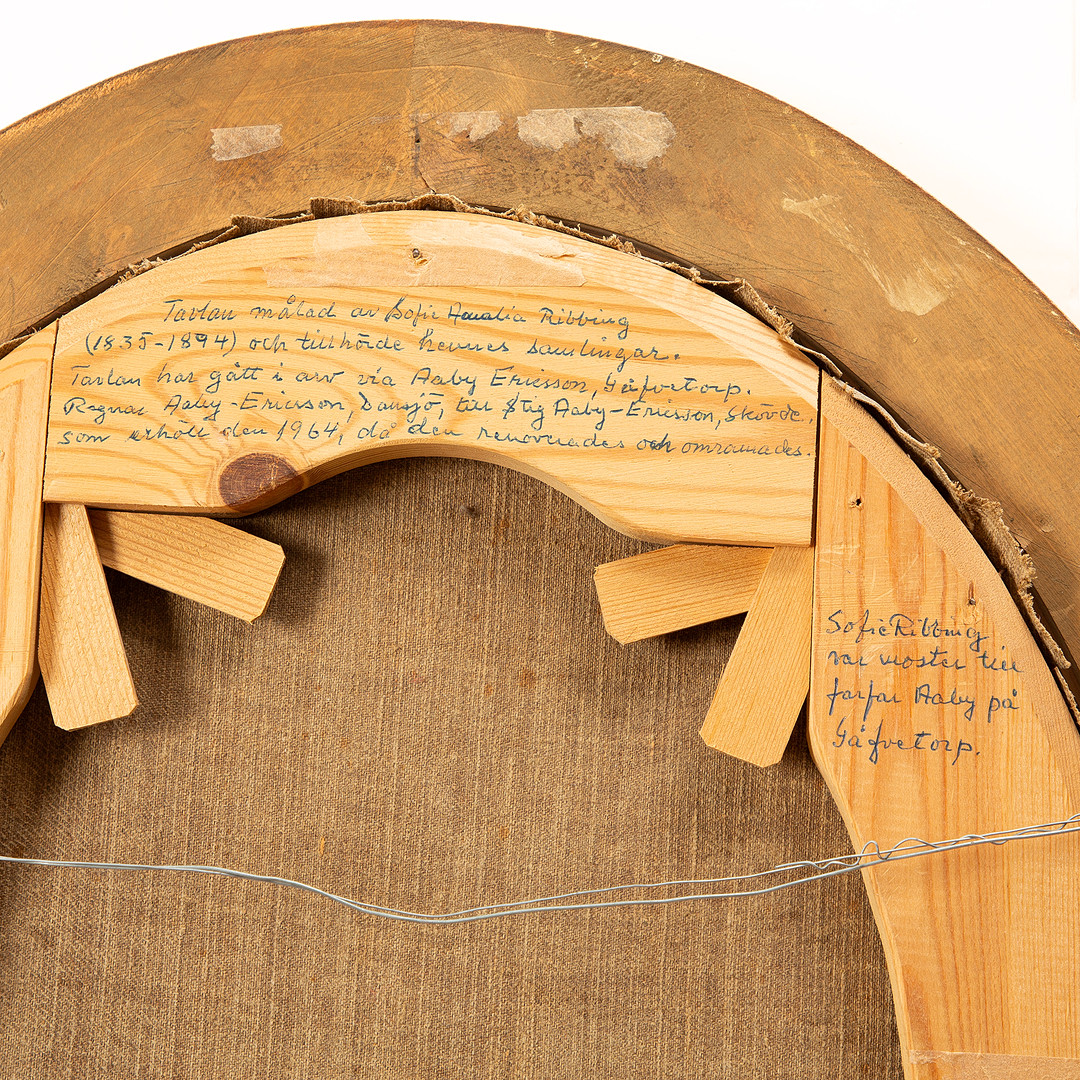 Tavlan målad av Sofie Amalia Ribbing
(1835-1894) och tillhörde hennes samlingar.
Tavlan har gått i arv via Aaby Ericsson, Gåfvetorp.
Ragnar Aaby-Ericsson, till Stig Aaby-Ericsson, Skövde,
som erhöll den 1964, då den renoverades och omramades.
Sofie Ribbing
var moster till
farfar Aaby på
Gåfvetorp.